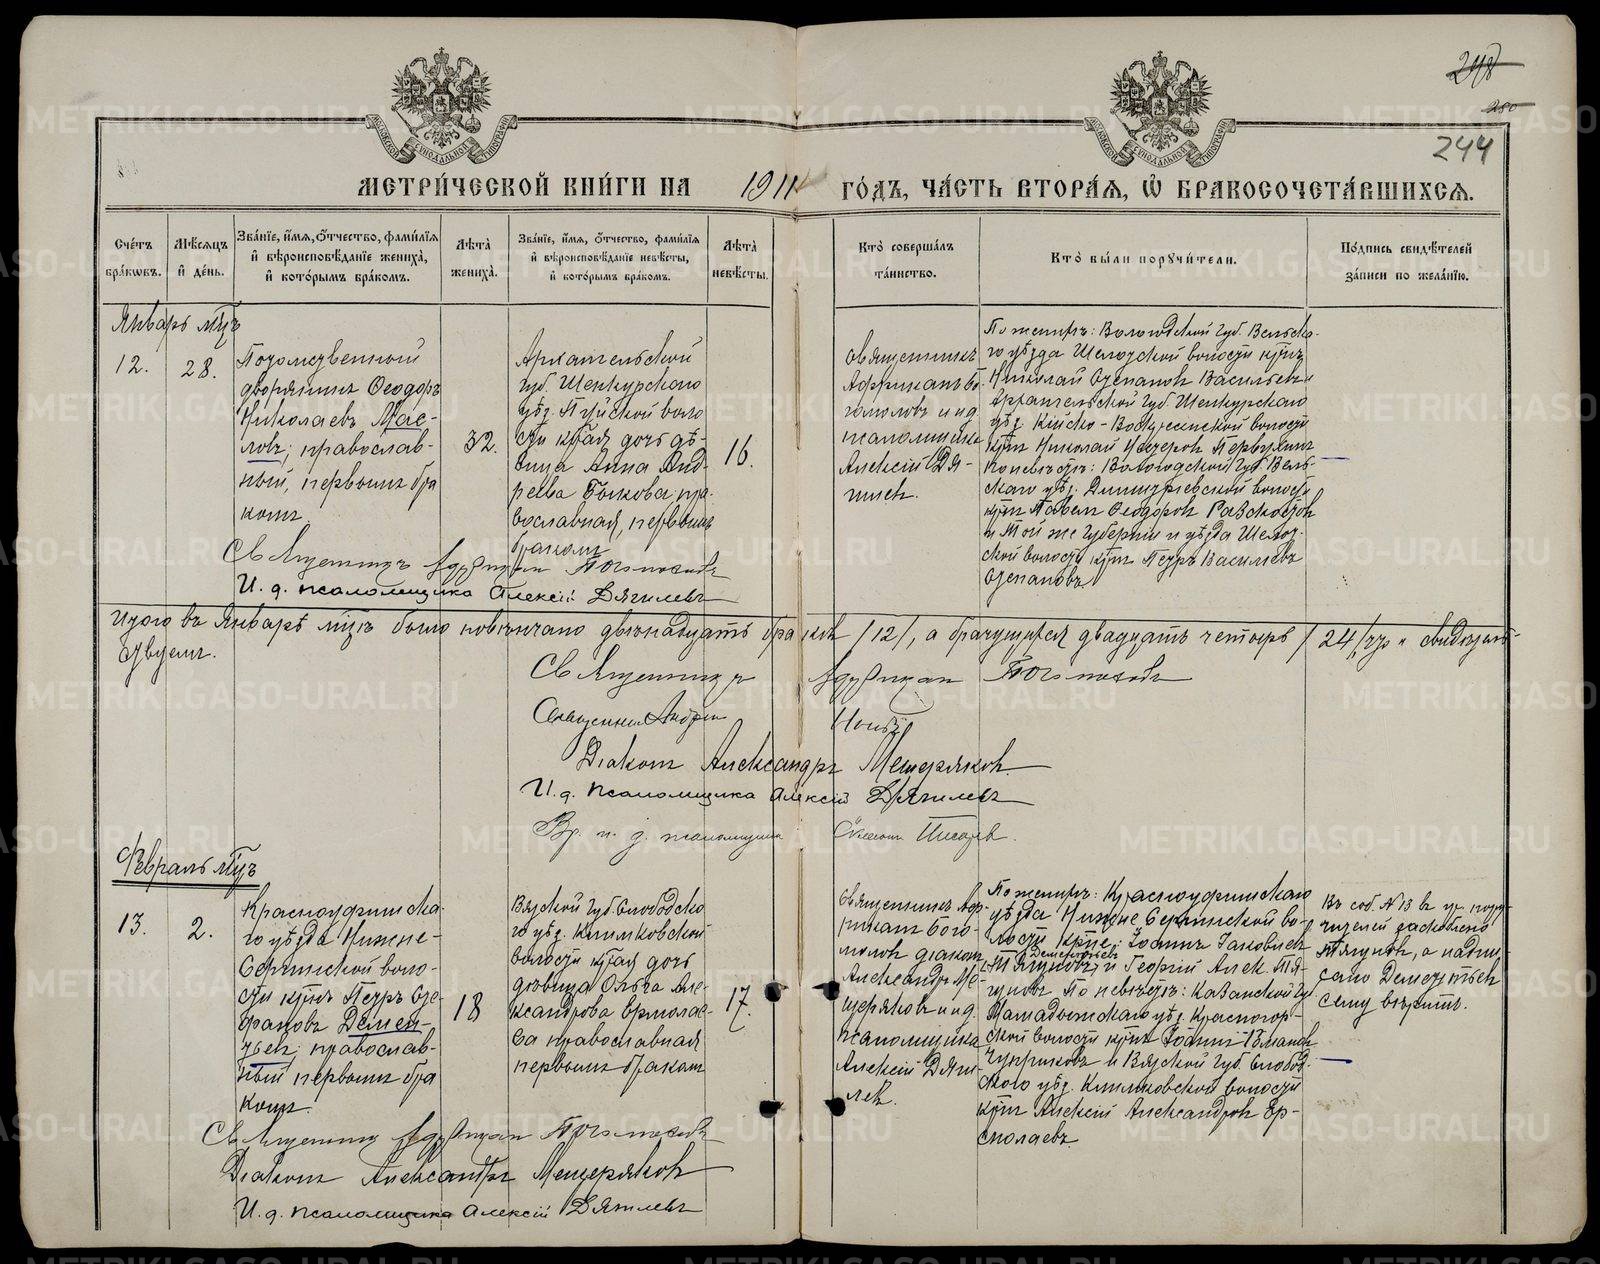 248
280
244
МОСКОВСКОЙ СѴНОДАЛЬНОЙ ТИПОГРАФІИ
МОСКОВСКОЙ СѴНОДАЛЬНОЙ ТИПОГРАФІИ
МЕТРИ́ЧЕСКОЙ КНИ́ГИ НА 1911 ГО́ДЪ, ЧА́СТЬ ВТОРА́Ѧ, Ѽ БРАКОСОЧЕТА́ВШИХСѦ.
Сче́тъ бра́кωвъ.
Мѣ́сѧцъ и҆ де́нь.
Зва́нїе, и҆́мѧ, ѻ҆́тчество, фами́лїѧ и҆ вѣроисповѣ́данїе жениха̀, и҆ кото́рымъ бра́комъ.
Лѣ́та̀ жениха̀.
Зва́нїе, и҆́мѧ, ѻ҆́тчество, фами́лїѧ и҆ вѣроисповѣ́данїе невѣ́сты, и҆ кото́рымъ бра́комъ.
Лѣ́та̀ невѣ́сты.
Кто̀ соверша́лъ та́инство.
Кто̀ бы́ли порꙋчи́тели.
По́дпись свидѣ́телей за́писи по жела́нїю.
Январь мцъ
12.
28.
Потомственный
дворянинъ Ѳеодоръ
Николаевъ Мас-
ловъ, православ-
ный, первымъ бра
комъ
32.
Архангельской
губ. Шенкурскаго
уѣз. Пуйской воло
сти кр-ая дочь дѣ-
вица Анна Анд-
реева Быкова, пра-
вославная, первымъ
бракомъ
16.
Священникъ
Африканъ Бо-
гомоловъ и и.д.
псаломщика
Алексій Дя-
гилевъ.
По женихѣ: Вологодской губ. Вельска-
го уѣзда Шелотской волости кр-нъ
Николай Степановъ Васильевъ и
Архангельской губ. Шенкурскаго
уѣз. Кийско-Воскресенской волости
кр-нъ Николай Первухинъ
По невѣстѣ: Вологодской губ. Вель-
скаго уѣз. Димитріевской волости
кр-нъ Павелъ Ѳеодоровъ
и той же губерніи и уѣзда Шелот-
ской волости кр-нъ Петръ Васильевъ
Степановъ
Священникъ Африканъ Богомоловъ
И. д. псаломщика Алексій Дягилевъ
Итого въ Январѣ мцѣ было повѣнчано двѣнадцать браковъ /12/, а брачущихся двадцать четыре /24/, что и свидѣтель-
ствуемъ.
Священникъ Африканъ Богомоловъ
Священникъ Андрей
Діаконъ Александръ Мещеряковъ
И. д. псаломщика Алексій Дягилевъ
Вр. и. д. псаломщика Писаревъ.
Февраль мцъ
13.
2.
Красноуфимска-
го уѣзда Нижне-
Сергинской воло-
сти кр-нъ Петръ Сте-
фановъ Демен-
тьевъ, православ-
ный первымъ бра
комъ.
18
Вятской губ. Слободска
го уѣз. Климковской
волости кр-ая дочь
дѣвица Ольга Але-
ксандрова Ермолае-
ва православная
первымъ бракомъ
17.
Священникъ Аф-
риканъ Бого-
моловъ діаконъ
Александръ Ме-
щеряковъ и и.д.
псаломщика
Алексій Дяги-
левъ.
По женихѣ: Красноуфимскаго
уѣзда Нижне Сергинской во-
лости кр-не: Іоаннъ Іаковлевъ
Дементьевъ
Тягуновъ, и Георгій Алек. Тя-
гуновъ По невѣстѣ: Казанской гу.
Мамадышскаго уѣз. Красногор-
ской волости кр-нъ Іоаннъ Романовъ
Чуприковъ и Вятской губ. Слобод-
ского уѣз. Климковской волости
кр-нъ Алексій Александровъ Ер-
молаевъ.
Въ соб. № 13 въ гр. пору-
чителей зачеркнено
Тягуновъ, а надпи-
сано Дементьевъ
сему вѣрить.
Священникъ Африканъ Богомоловъ
Діаконъ Александръ Мещеряковъ
И. д. псаломщика Алексій Дягилевъ
METRIKI.GASO-URAL.RU